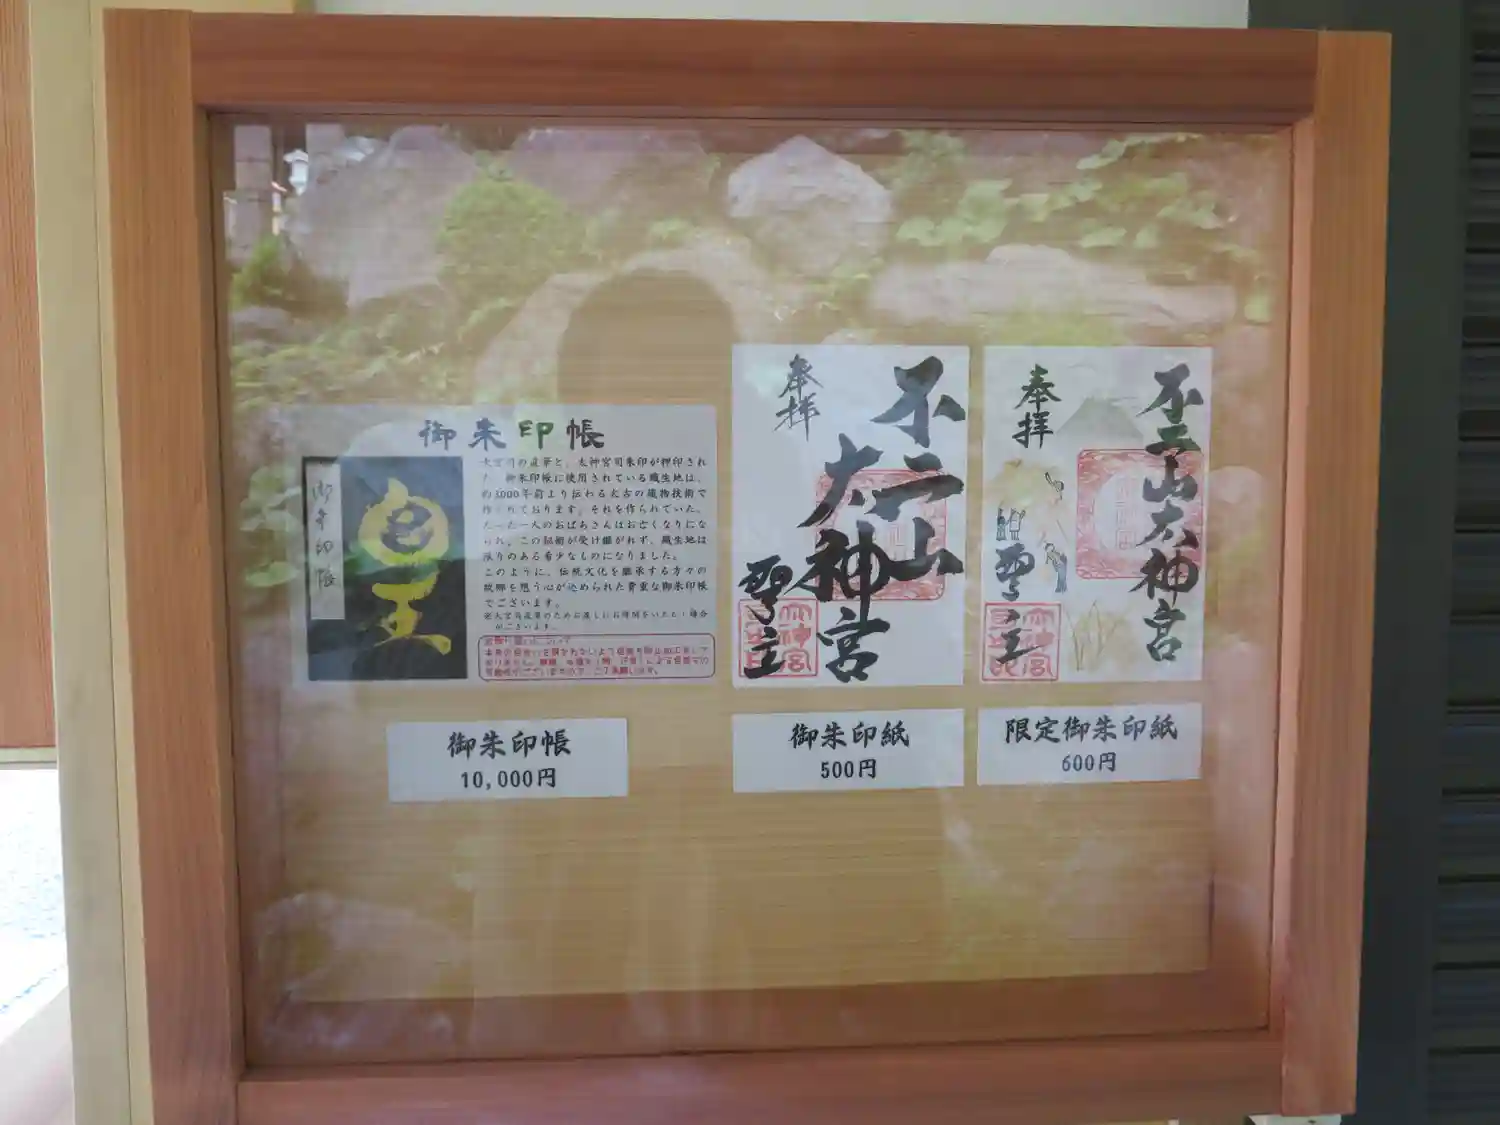 御朱印帳
御朱印帳
皇王
大宮司の直筆と、太神宮司朱印が押印され
た、御朱印帳に使用されている織生地は、
約3000年前より伝わる太古の織物技術で
作られております。それを作られていた、
たった一人のおばあさんはお亡くなりにな
られ、この秘術が受け継がれず、織生地は
限りのある希少なものになりました。
このように、伝統文化を継承する方々の
故郷を想う心が込められた貴重な御朱印帳
でございます。
がございます。
御朱印帳
10,000円
奉拝
不二山
太神宮
聖主
御朱印紙
500円
奉拝
不二山太神宮
聖主
限定御朱印紙
600円